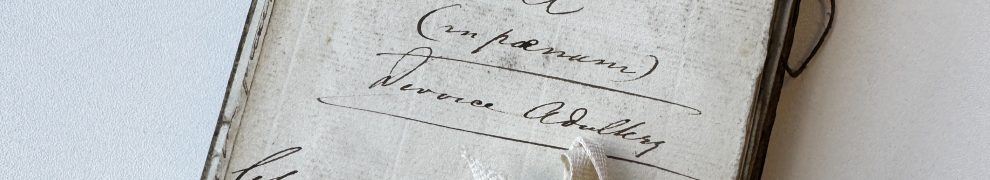 (in pœnum)
Divorce Adultery